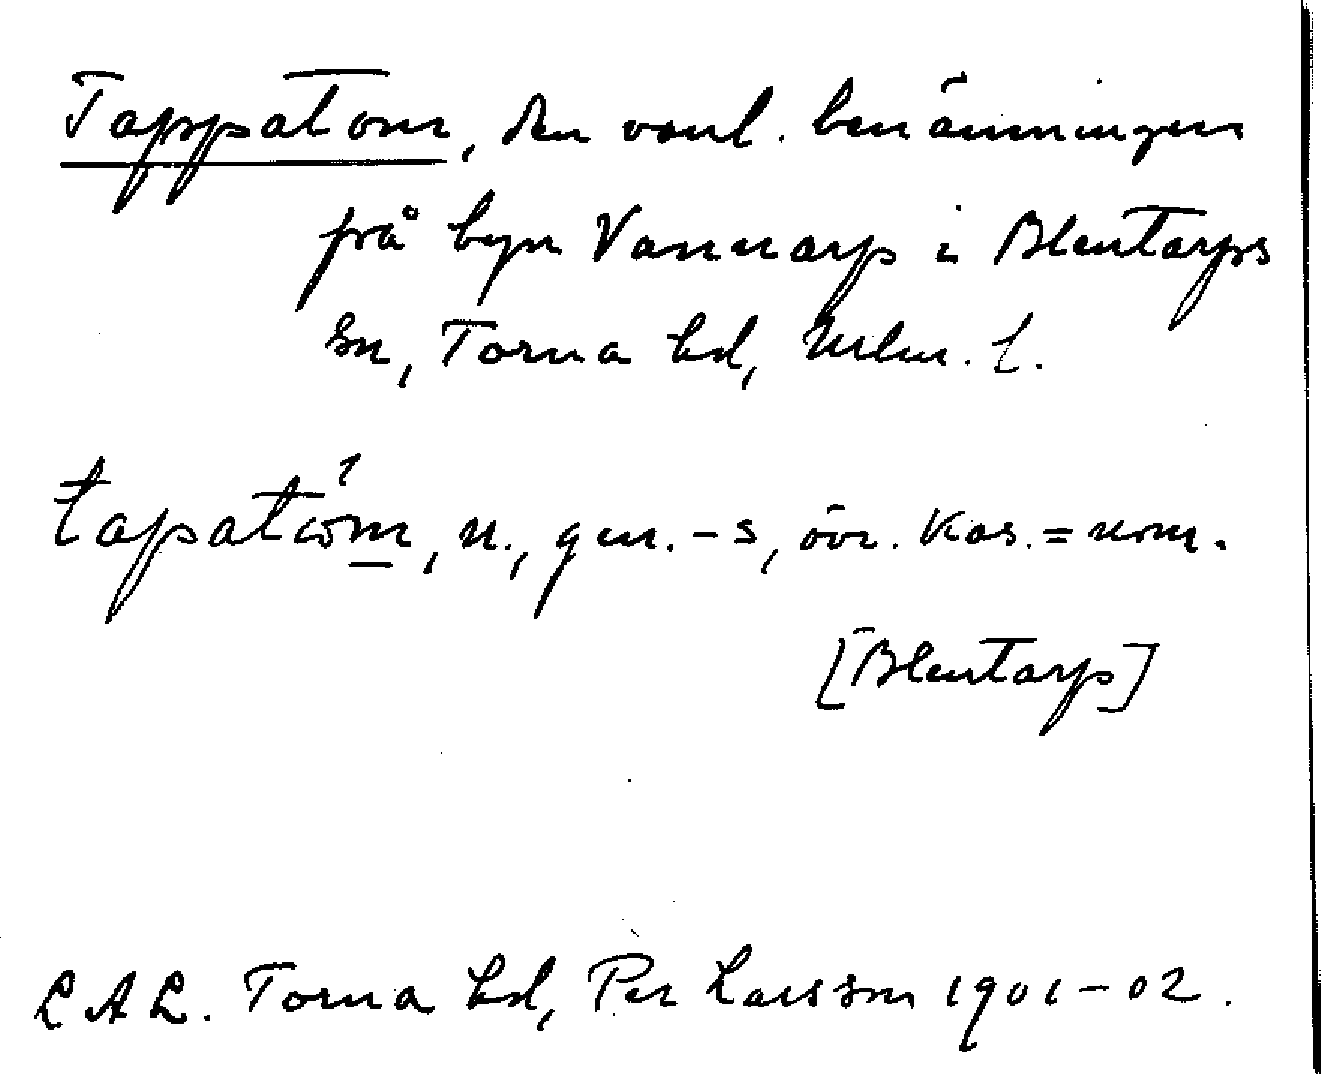 Tappatom, den vanl. benämningen
på byn Vannarp i Blentarps
sn, Torna hd, Mlm. l.
tapatωm, n., gen. -s, övr. kas. = nom.
[Blentarp]
L A L. Torna hd, Per Larsson 1901-02.